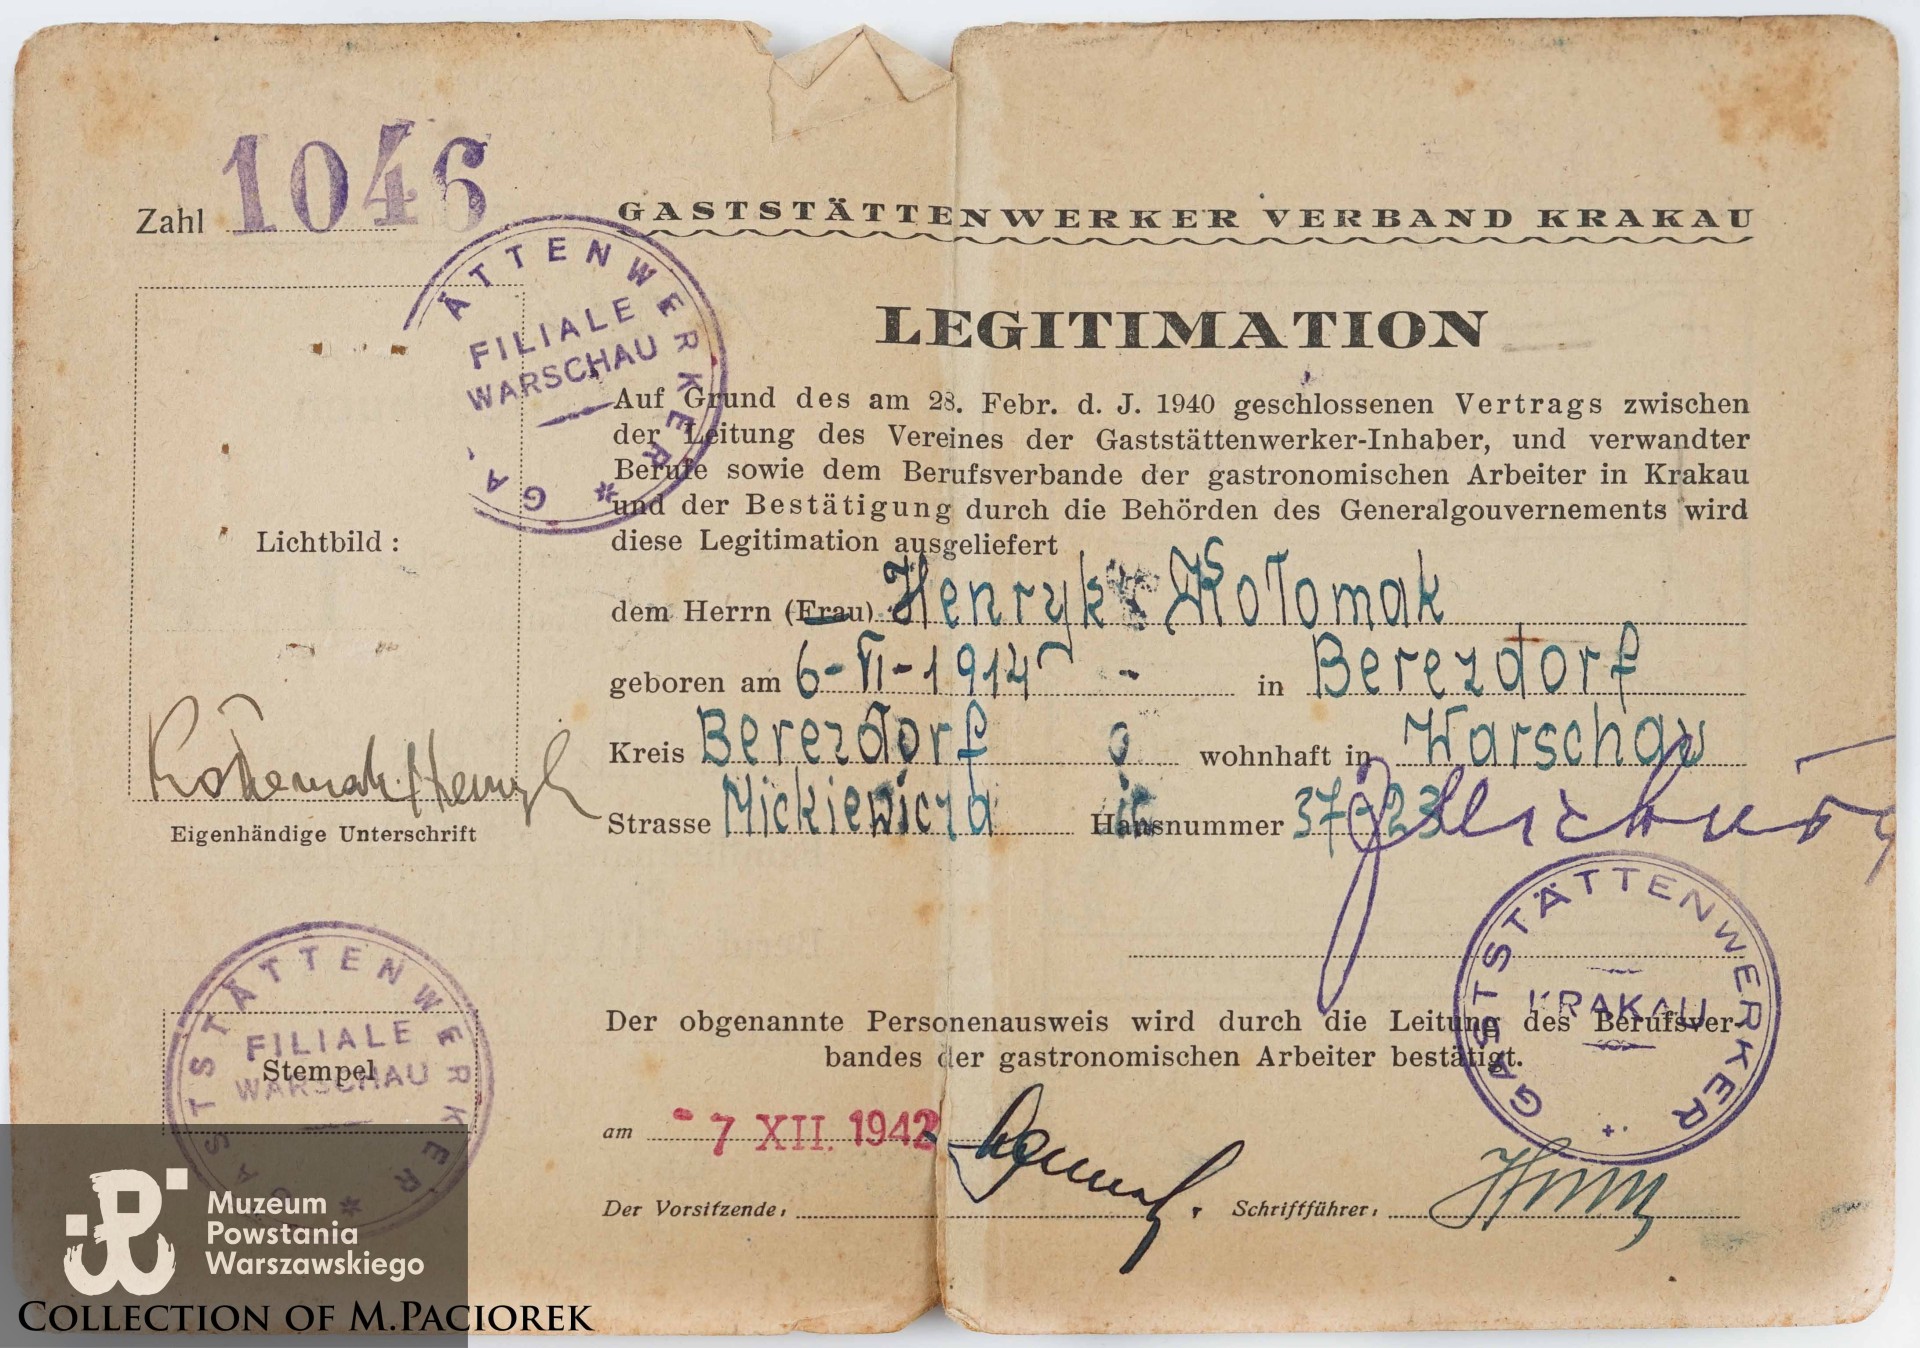 Zahl 1046
GASTSTÄTTENWERKER VERBAND KRAKAU
ÄTTENWERKER * GA
FILIALE
WARSCHAU
LEGITIMATION
Auf Grund des am 28. Febr. d. J. 1940 geschlossenen Vertrags zwischen
der Leitung des Vereines der Gaststättenwerker-Inhaber, und verwandter
Berufe sowie dem Berufsverbande der gastronomischen Arbeiter in Krakau
und der Bestätigung durch die Behörden des Generalgouvernements wird
diese Legitimation ausgeliefert
Lichtbild:
dem Herrn (Frau) Henryk Kotomak
geboren am 6-VI-1914 - in Berezdorf
Kreis Berezdorf wohnhaft in Warschau
Strasse Mickiewicza Hausnummer 37-23
Kotomak Henryk
Eigenhändige Unterschrift
GASTSTÄTTENWERKER
KRAKAU
GASTSTÄTTENWERKER *
FILIALE
WARSCHAU
Stempel
Der obgenannte Personenausweis wird durch die Leitung des Berufsver-
bandes der gastronomischen Arbeiter bestätigt.
am -7 XII. 1942
Der Vorsitzende: Schriftführer:
Muzeum
Powstania
Warszawskiego
COLLECTION OF M.PACIOREK